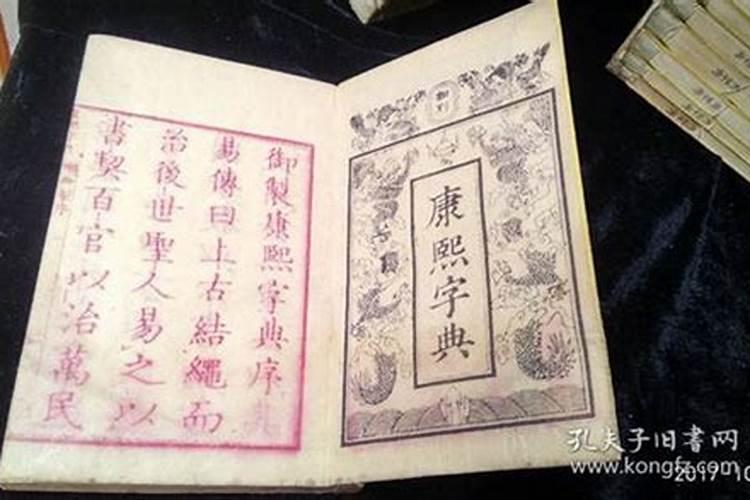 康熙字典
御製康熙字典序
易傳曰上古結繩而
治後世聖人易之以
書契百官以治萬民
孔夫子旧书网
www.kongfz.com
2017 10